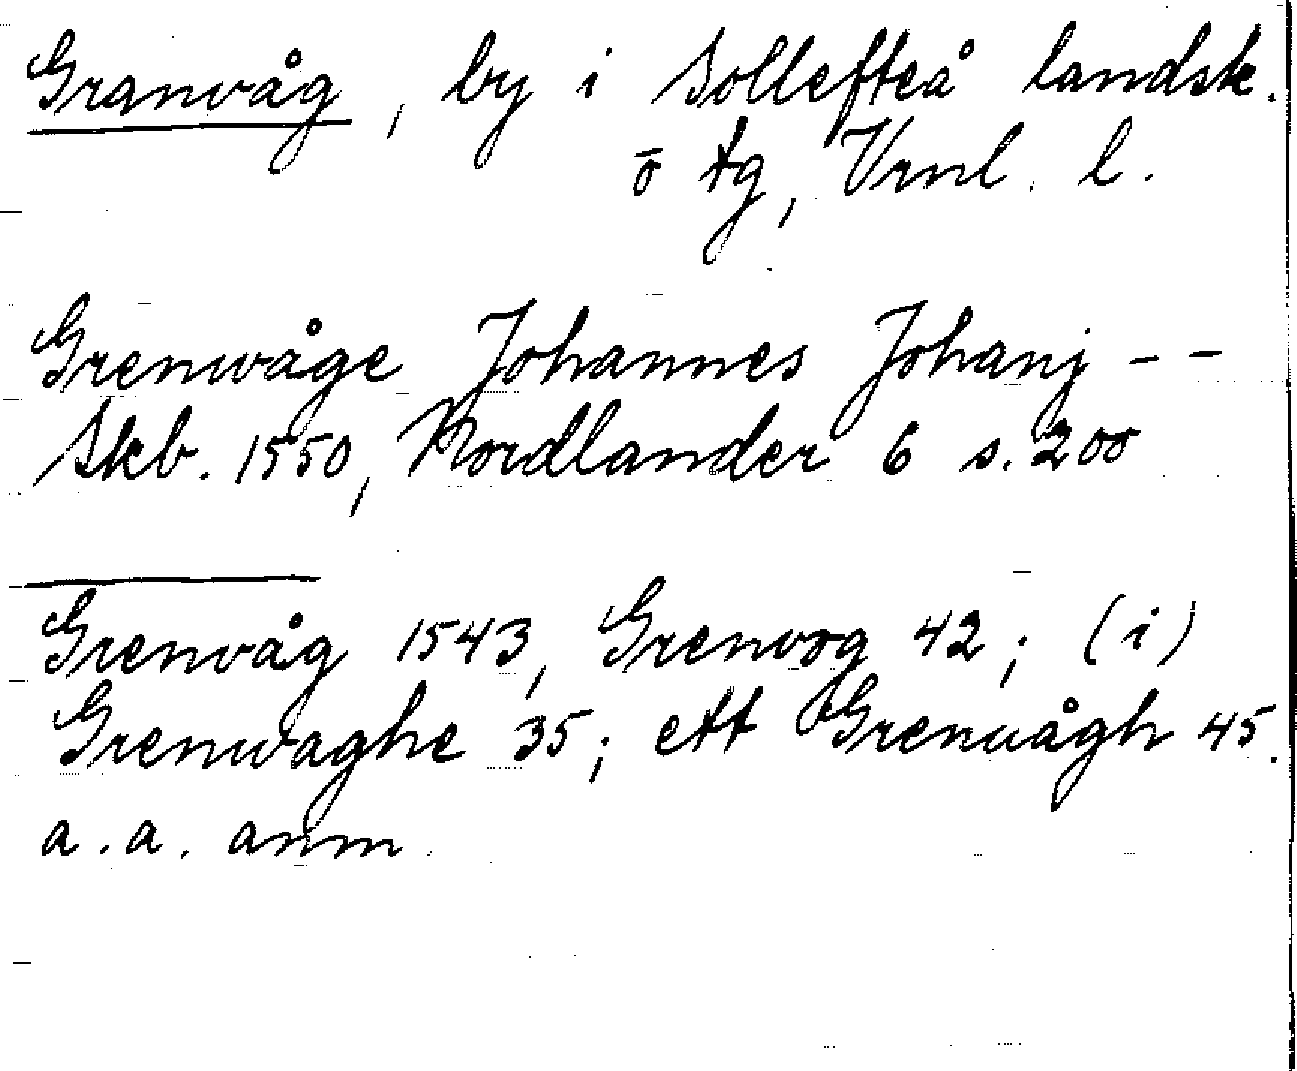 Granvåg, by i Sollefteå landsk.
o tg, Vrnl. l.
Grenwåge Johannes Johanj - -
Skb. 1550, Nordlander 6 s. 200
Grenvåg 1543, Grenvog 42; (i)
Grenwaghe 35; ett Grenuågh 45.
a.a. anm.